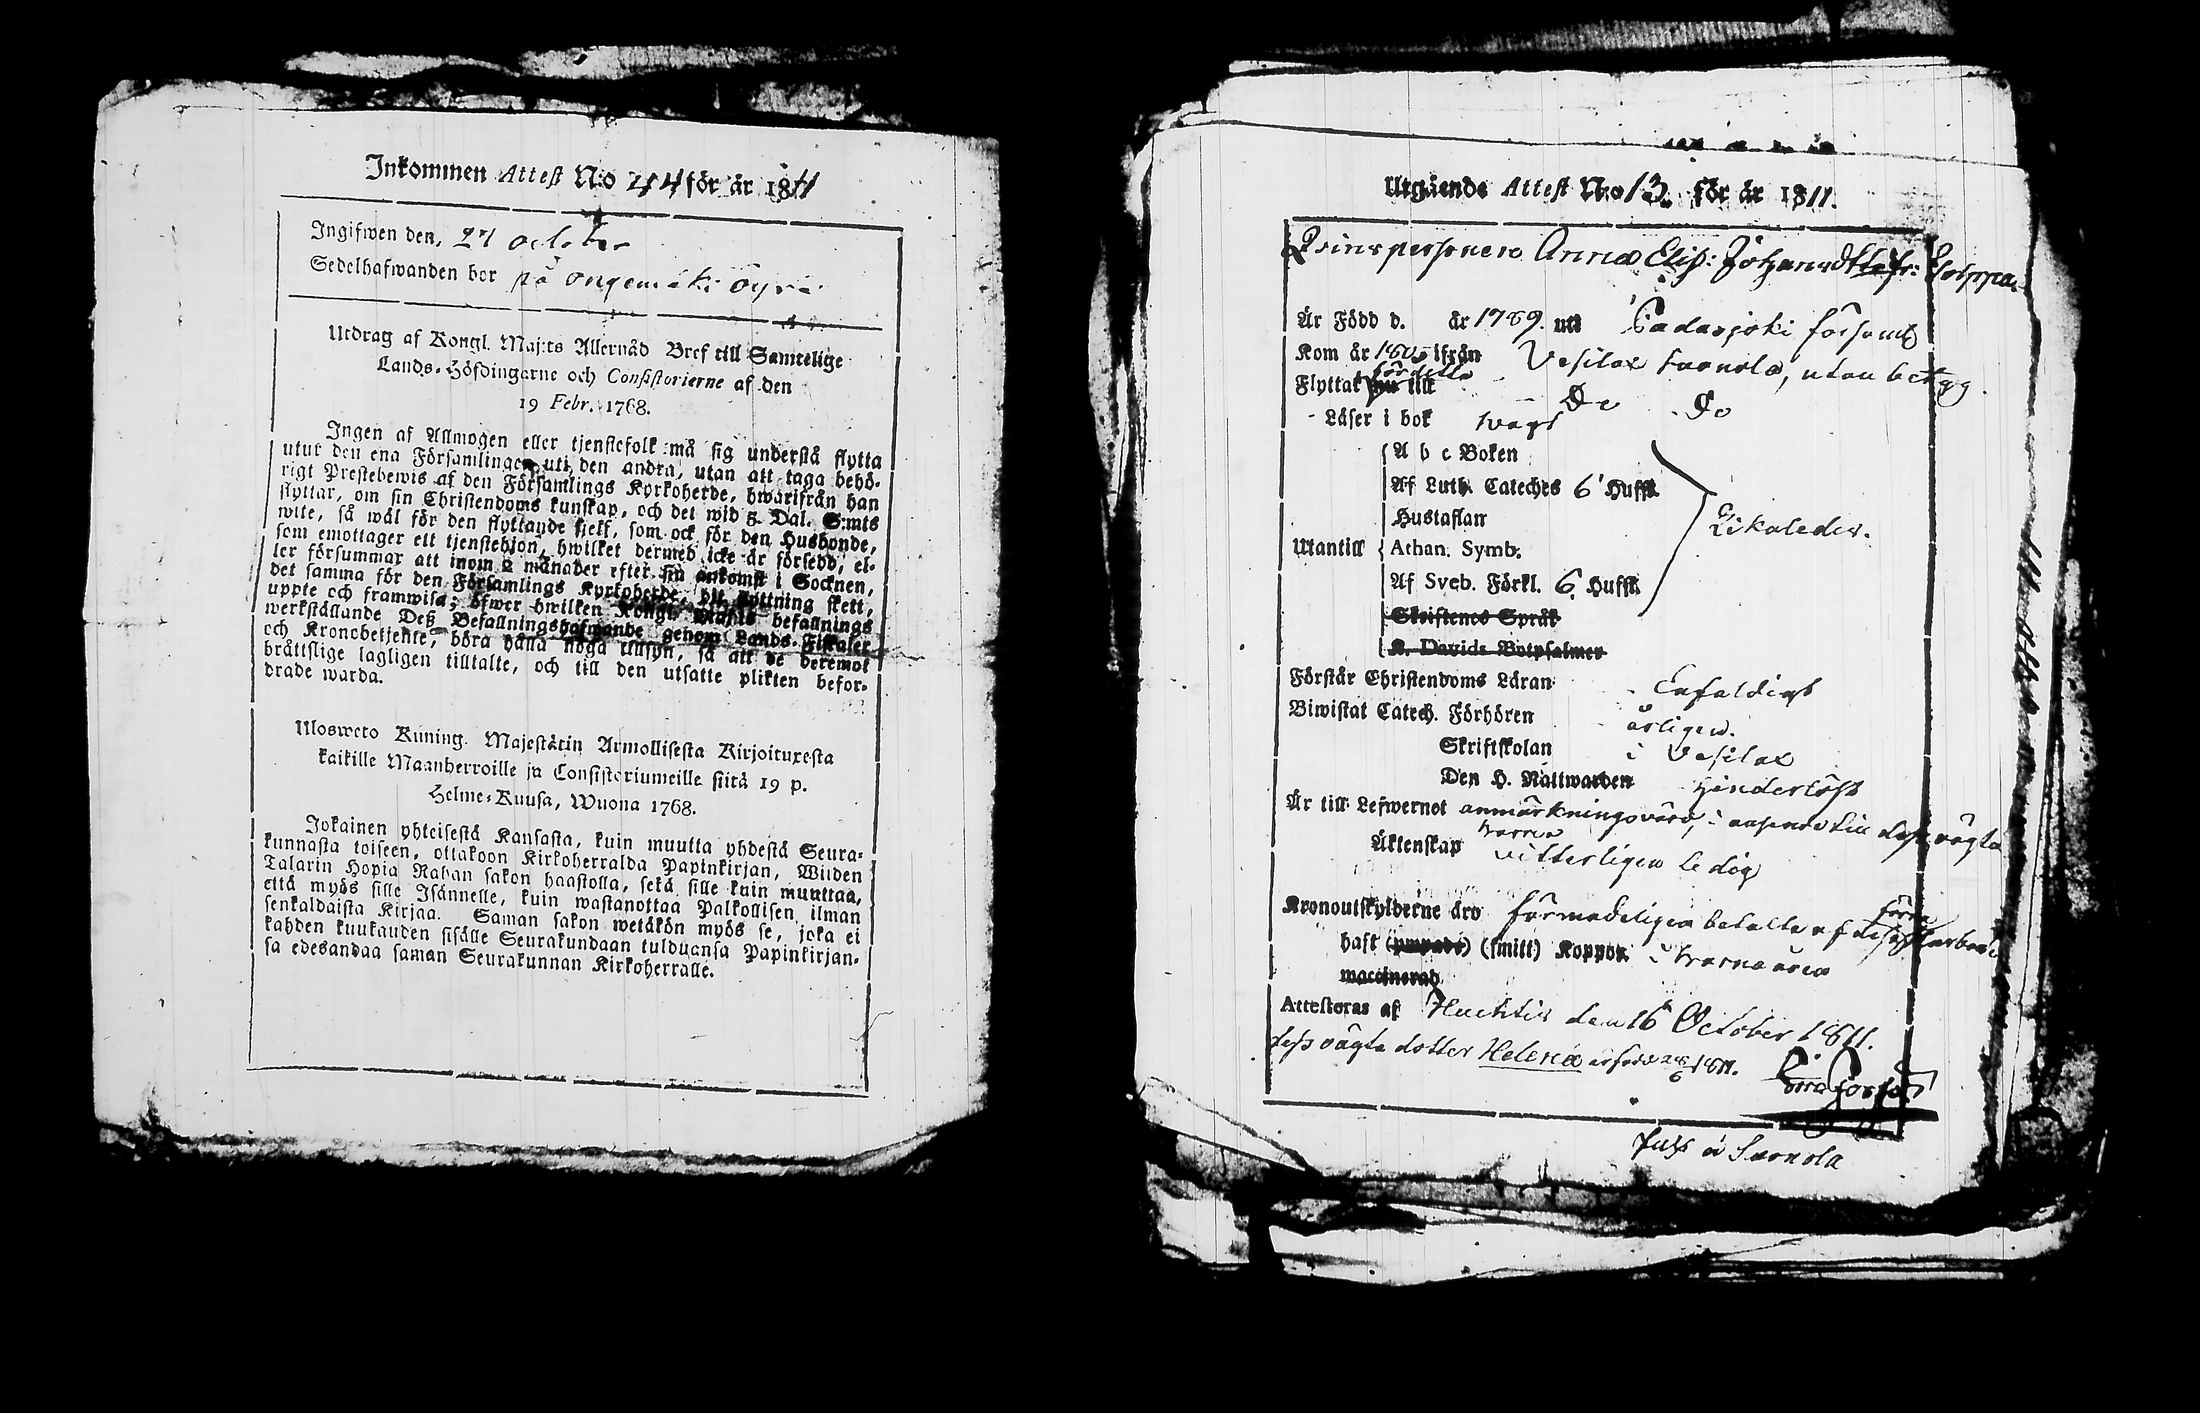 Inkommen Attest N:o 44 för år 1811
Ingifwen den, 27 october
Sedelhafwanden bor på
Utdrag af Kongl. Maj:ts Allernåd Bref till Samtelige
Lands-Höfdingarne och Consistorierne af den
19 Febr. 1768.
Ingen af Allmogen eller tjenstefolk må sig understå flytta
utur den ena Församlingen uti den andra, utan att taga behö-
rigt Prestebewis af den Församlings Kyrkoherde, hwarifrån han
flyttar, om sin Christendoms kunskap, och det wid 5. Dal. S:mts
wite, så wäl för den flyttande sjelf, som ock för den Husbonde,
som emottager ett tjenstehjon, hwilket dermed icke är försedd, el-
ler försummar att inom 2 månader efter sin ankomst i Socknen,
det samma för den Församlings Kyrkoherde, dit flyttning skett,
uppte och framwisa; öfwer hwilken Kongl. Maj:ts befallnings
werkställande Deß Befallningshafwande genom Lands-Fiskaler
och Kronobetjente, böra hålla noga tillsyn, så att de deremot
bråttslige lagligen tilltalte, och till den utsatte plikten befor-
drade warda.
Ulosweto Kuning. Majestätin Armollisesta Kirjoituxesta
kaikille Maanherroille ja Consistoriumeille siitä 19 p.
Helme-Kuusa, Wuona 1768.
Jokainen yhteisestä Kansasta, kuin muutta yhdestä Seura-
kunnasta toiseen, ottakoon Kirkoherralda Papinkirjan, Wiiden
Talarin Hopia Rahan sakon haastolla, sekä sille kuin muuttaa,
että myös sille Isännelle, kuin wastanottaa Palkollisen ilman
senkaldaista Kirjaa. Saman sakon wetäkön myös se, joka ei
kahden kuukauden sisälle Seurakundaan tulduansa Papinkirjan-
sa edesandaa saman Seurakunnan Kirkoherralle.
Utgående Attest N:o 13. för år 1811.
Qvinspersonen Anna Elis: Johansdotter
Är Född d. år 1789. uti Padasjoki församl
Kom år ifrån Vesilax Suonola, utan betygg.
Flyttat nu till förditto Do Do
Läser i bok svagt
A b c Boken
Af Luth. Cateches 6 Hufst.
Hustaflan
Likaledes.
Utantill Athan. Symb.
Af Sveb. Förkl. 6 Hufst.
Skriftenes Språk
K. Davids Botpsalmer
Förstår Christendoms Läran Enfaldigt
Biwistat Catech. Förhören årligen.
Skriftskolan i Vesilax
Den H. Nattwarden Hinderlöst
Är till Lefwernet anmärkningsvärd, i anseende till dess oägta
barn
Äktenskap vitterligen ledig
Kronoutskylderne äro förmodeligen betalte af dess
haft (ympade) (smitt) Koppor i barnaåren
maccinerad
Attesteras af Huittis den 16 October 1811.
dess oägta dotter Helena är född 28/6 1811.
Suonola